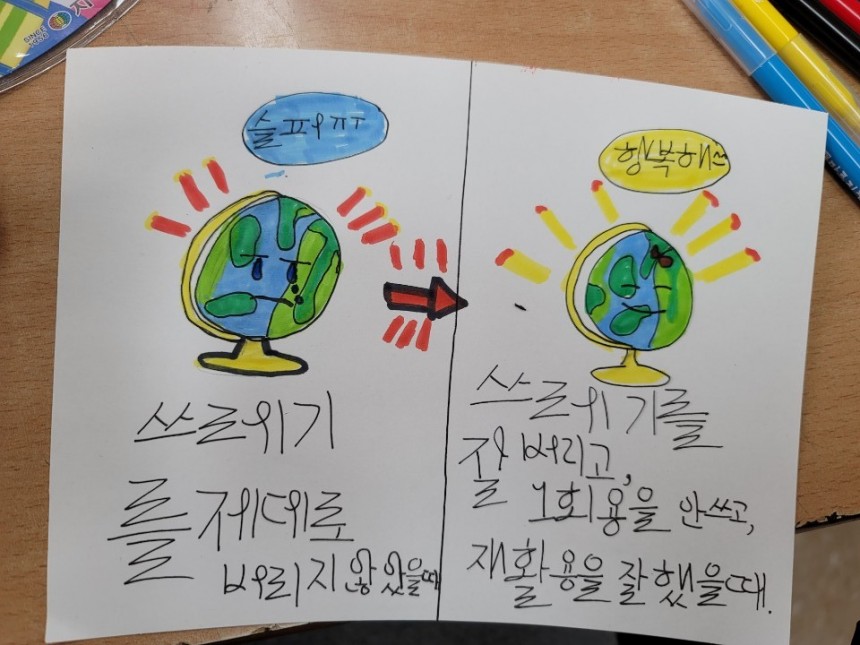 슬퍼ㅠㅜ
쓰르위기
를 제대로
버리지 않았을때
행복해^^
쓰르위기를
잘 버리고,
1회용을 안쓰고,
재활용을 잘했을때.